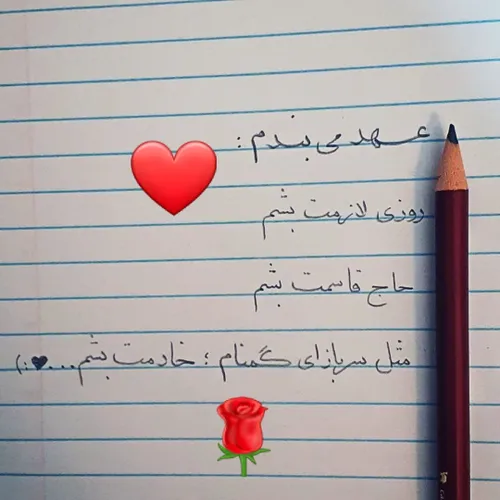 عهد می بندم :
روزی لازمت بشم
حاج قاسمت بشم
مثل سربازای گمنام ؛ خادمت بشم...♥:)